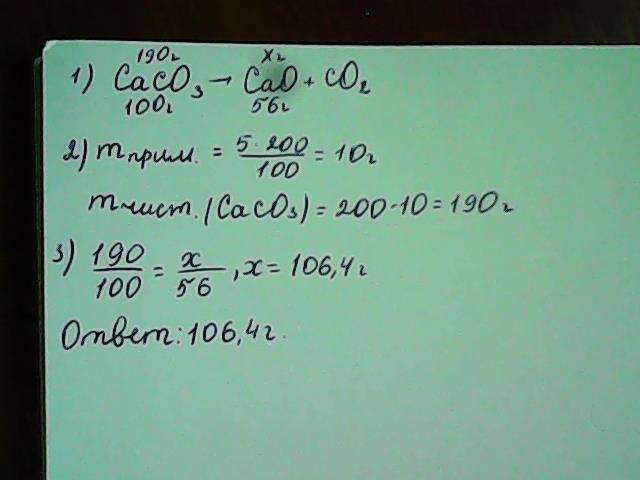 190г хг
1) CaCO₃ → CaO + CO₂
100г 56г
2) mприм. = 5·200/100 = 10г
mчист.(CaCO₃) = 200-10 = 190г
3) 190/100 = x/56, x = 106,4г
Ответ: 106,4г.